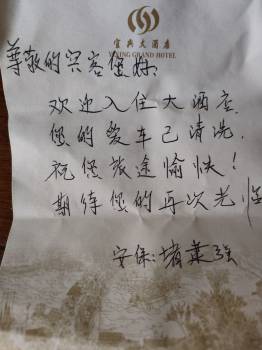 宜兴大酒店
YIXING GRAND HOTEL
尊敬的宾客您好:
欢迎入住大酒店,
您的爱车已清洗,
祝您旅途愉快!
期待您的再次光临
安保:堵荣强